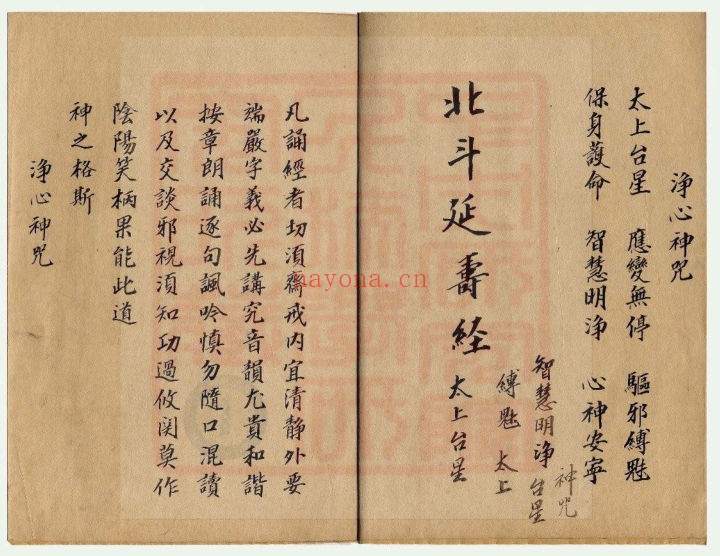 净心神咒
太上台星 應變無停 驅邪縛魅
保身護命 智慧明净 心神安寧
神咒
智慧明净 台星
縛魅 太上
北斗延壽経 太上台星
凡誦經者切須齋戒內宜清靜外要
端嚴字義必先講究音韻尤貴和諧
按章朗誦逐句諷吟慎勿隨口混讀
以及交談邪視須知功過攸関莫作
陰陽笑柄果能此道
神之格斯
净心神咒
nayona.cn